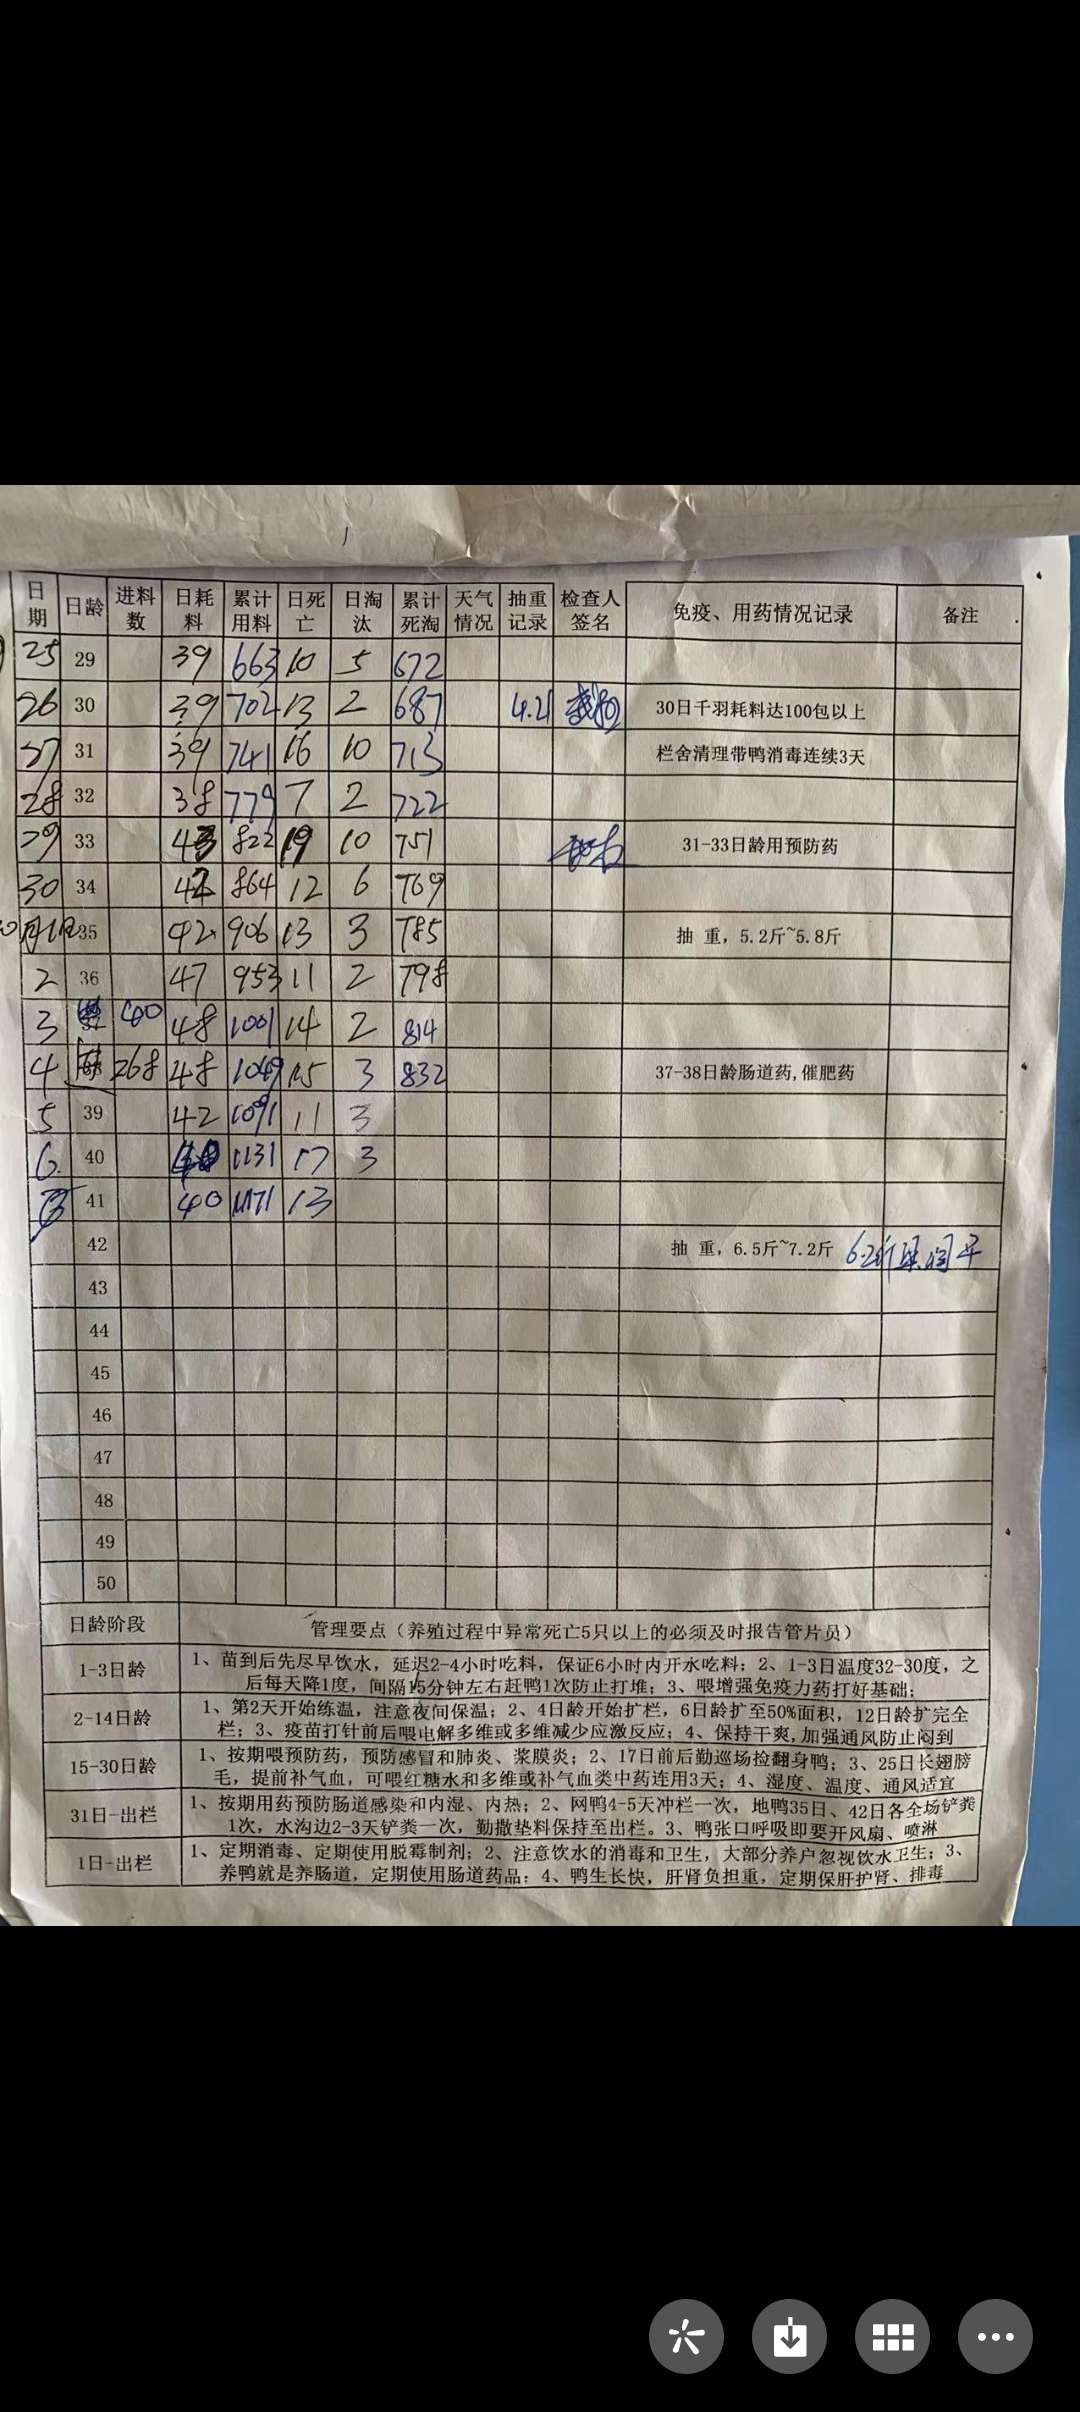 日期 日龄 进料数 日耗料 累计用料 日死亡 日淘汰 累计死淘 天气情况 抽重记录 检查人签名 免疫、用药情况记录 备注
25 29 39 663 10 5 672
26 30 39 702 13 2 687 4.21 30日千羽耗料达100包以上
27 31 39 741 16 10 713 栏舍清理带鸭消毒连续3天
28 32 38 779 7 2 722
29 33 43 822 19 10 751 31-33日龄用预防药
30 34 42 864 12 6 769
35 42 906 13 3 785 抽 重, 5.2斤~5.8斤
2 36 47 953 11 2 798
3 400 48 1001 14 2 814
4 268 48 1049 15 3 832 37-38日龄肠道药,催肥药
5 39 42 1091 11 3
6. 40 1131 17 3
41 40 1171 13
42 抽 重, 6.5斤~7.2斤 6.2斤
43
44
45
46
47
48
49
50
日龄阶段 管理要点（养殖过程中异常死亡5只以上的必须及时报告管片员）
1-3日龄 1、苗到后先尽早饮水，延迟2-4小时吃料，保证6小时内开水吃料；2、1-3日温度32-30度，之
后每天降1度，间隔15分钟左右赶鸭1次防止打堆；3、喂增强免疫力药打好基础；
2-14日龄 1、第2天开始练温，注意夜间保温；2、4日龄开始扩栏，6日龄扩至50%面积，12日龄扩完全
栏；3、疫苗打针前后喂电解多维或多维减少应激反应；4、保持干爽,加强通风防止闷到
15-30日龄 1、按期喂预防药，预防感冒和肺炎、浆膜炎；2、17日前后勤巡场捡翻身鸭；3、25日长翅膀
毛，提前补气血，可喂红糖水和多维或补气血类中药连用3天；4、湿度、温度、通风适宜
31日-出栏 1、按期用药预防肠道感染和内湿、内热；2、网鸭4-5天冲栏一次，地鸭35日、42日各全场铲粪
1次，水沟边2-3天铲粪一次，勤撒垫料保持至出栏。3、鸭张口呼吸即要开风扇、喷淋
1日-出栏 1、定期消毒、定期使用脱霉制剂；2、注意饮水的消毒和卫生，大部分养户忽视饮水卫生；3、
养鸭就是养肠道，定期使用肠道药品；4、鸭生长快，肝肾负担重，定期保肝护肾、排毒